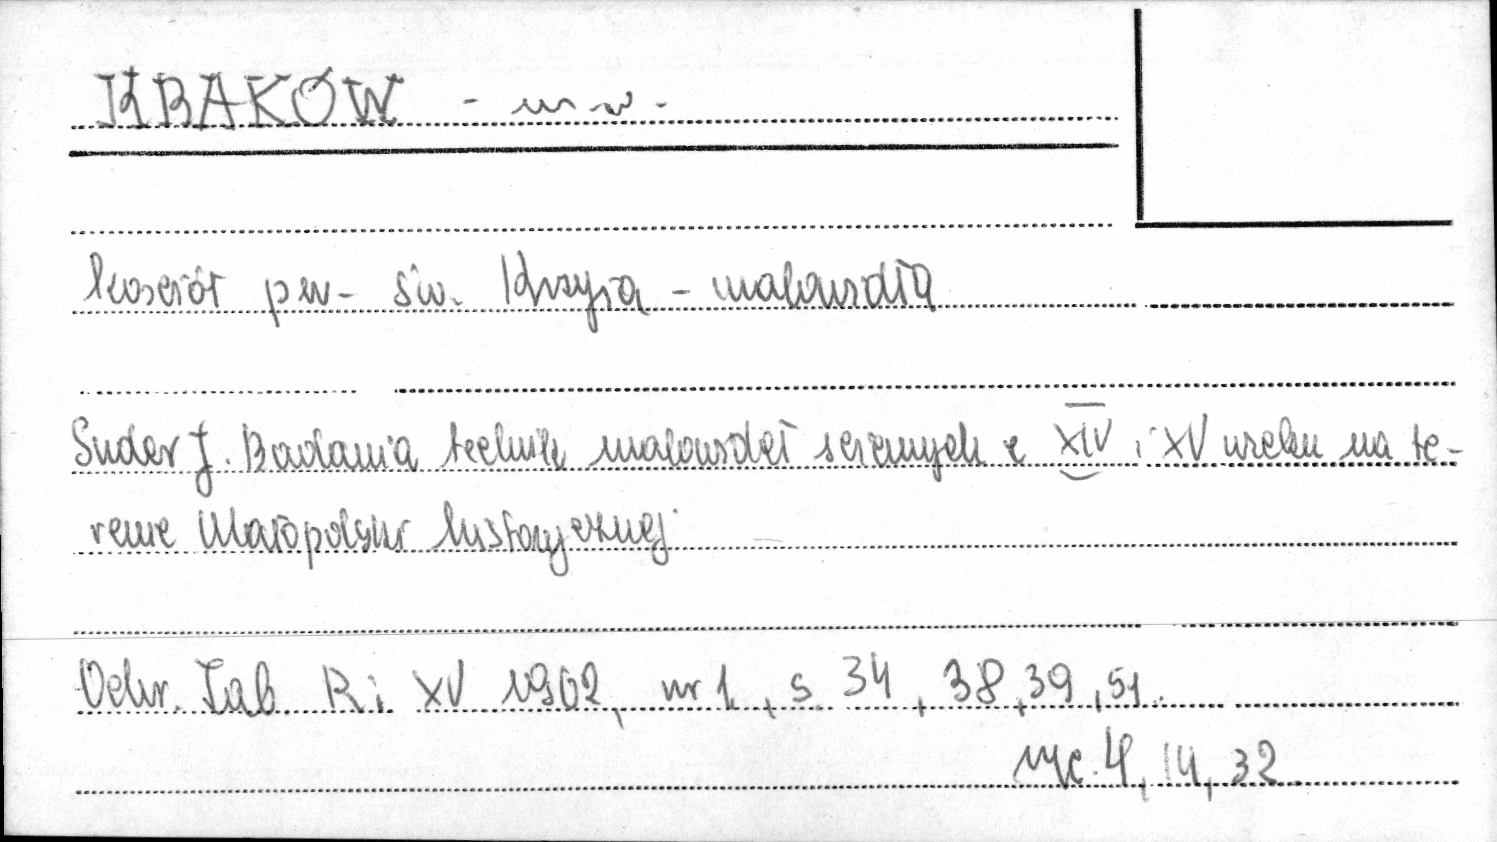 KRAKÓW - m w -
kościół pw. św. Krzyża - malowidła
Suder J. Badania technik malowideł ściennych z XIV i XV wieku na te-
renie Małopolski historycznej
Ochr. Zab R: XV 1962, nr 1, s. 34, 38, 39, 51.
ryc. 4, 14, 32